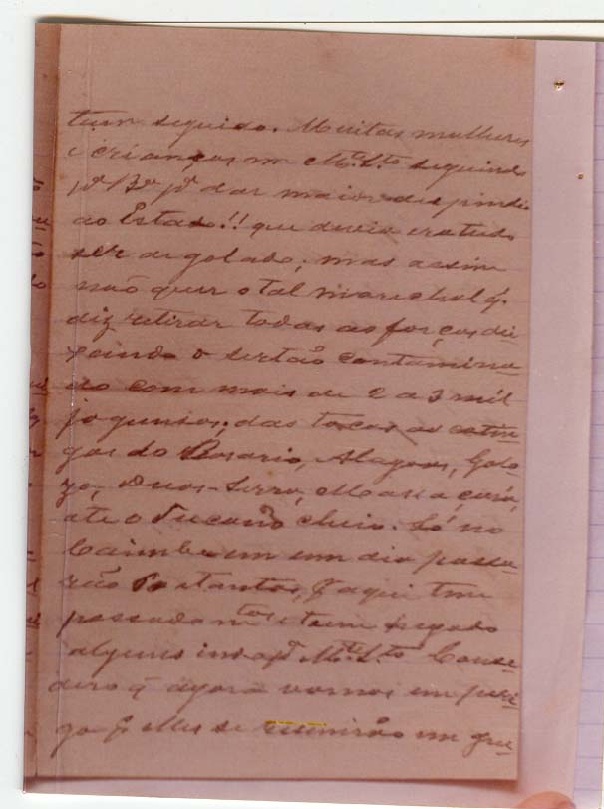 tem seguido. Muitas mulheres
e crianças em Mte. Sto. seguindo
pa. Ba. pa. dar maior despindio
ao Estado!! que devia era tudo
ser degolado; mas assim
não quer o tal marechal q.
diz retirar todas as forças dei
xando o sertão contamina-
do com mais de 2 a 3 mil
jagunços; das tocas as catin
gas do Rosario, Alagoas,
Duas-Serra, Massacará,
ate o Tucano cheio. Só no
Caimbe em um dia passa-
rão tantos, q. aqui tem
passado mtos. e tem
alguns pa. Mte. Sto. Conse-
lheiro q. agora vamos em peri-
go q. elles se reunirão em gru-